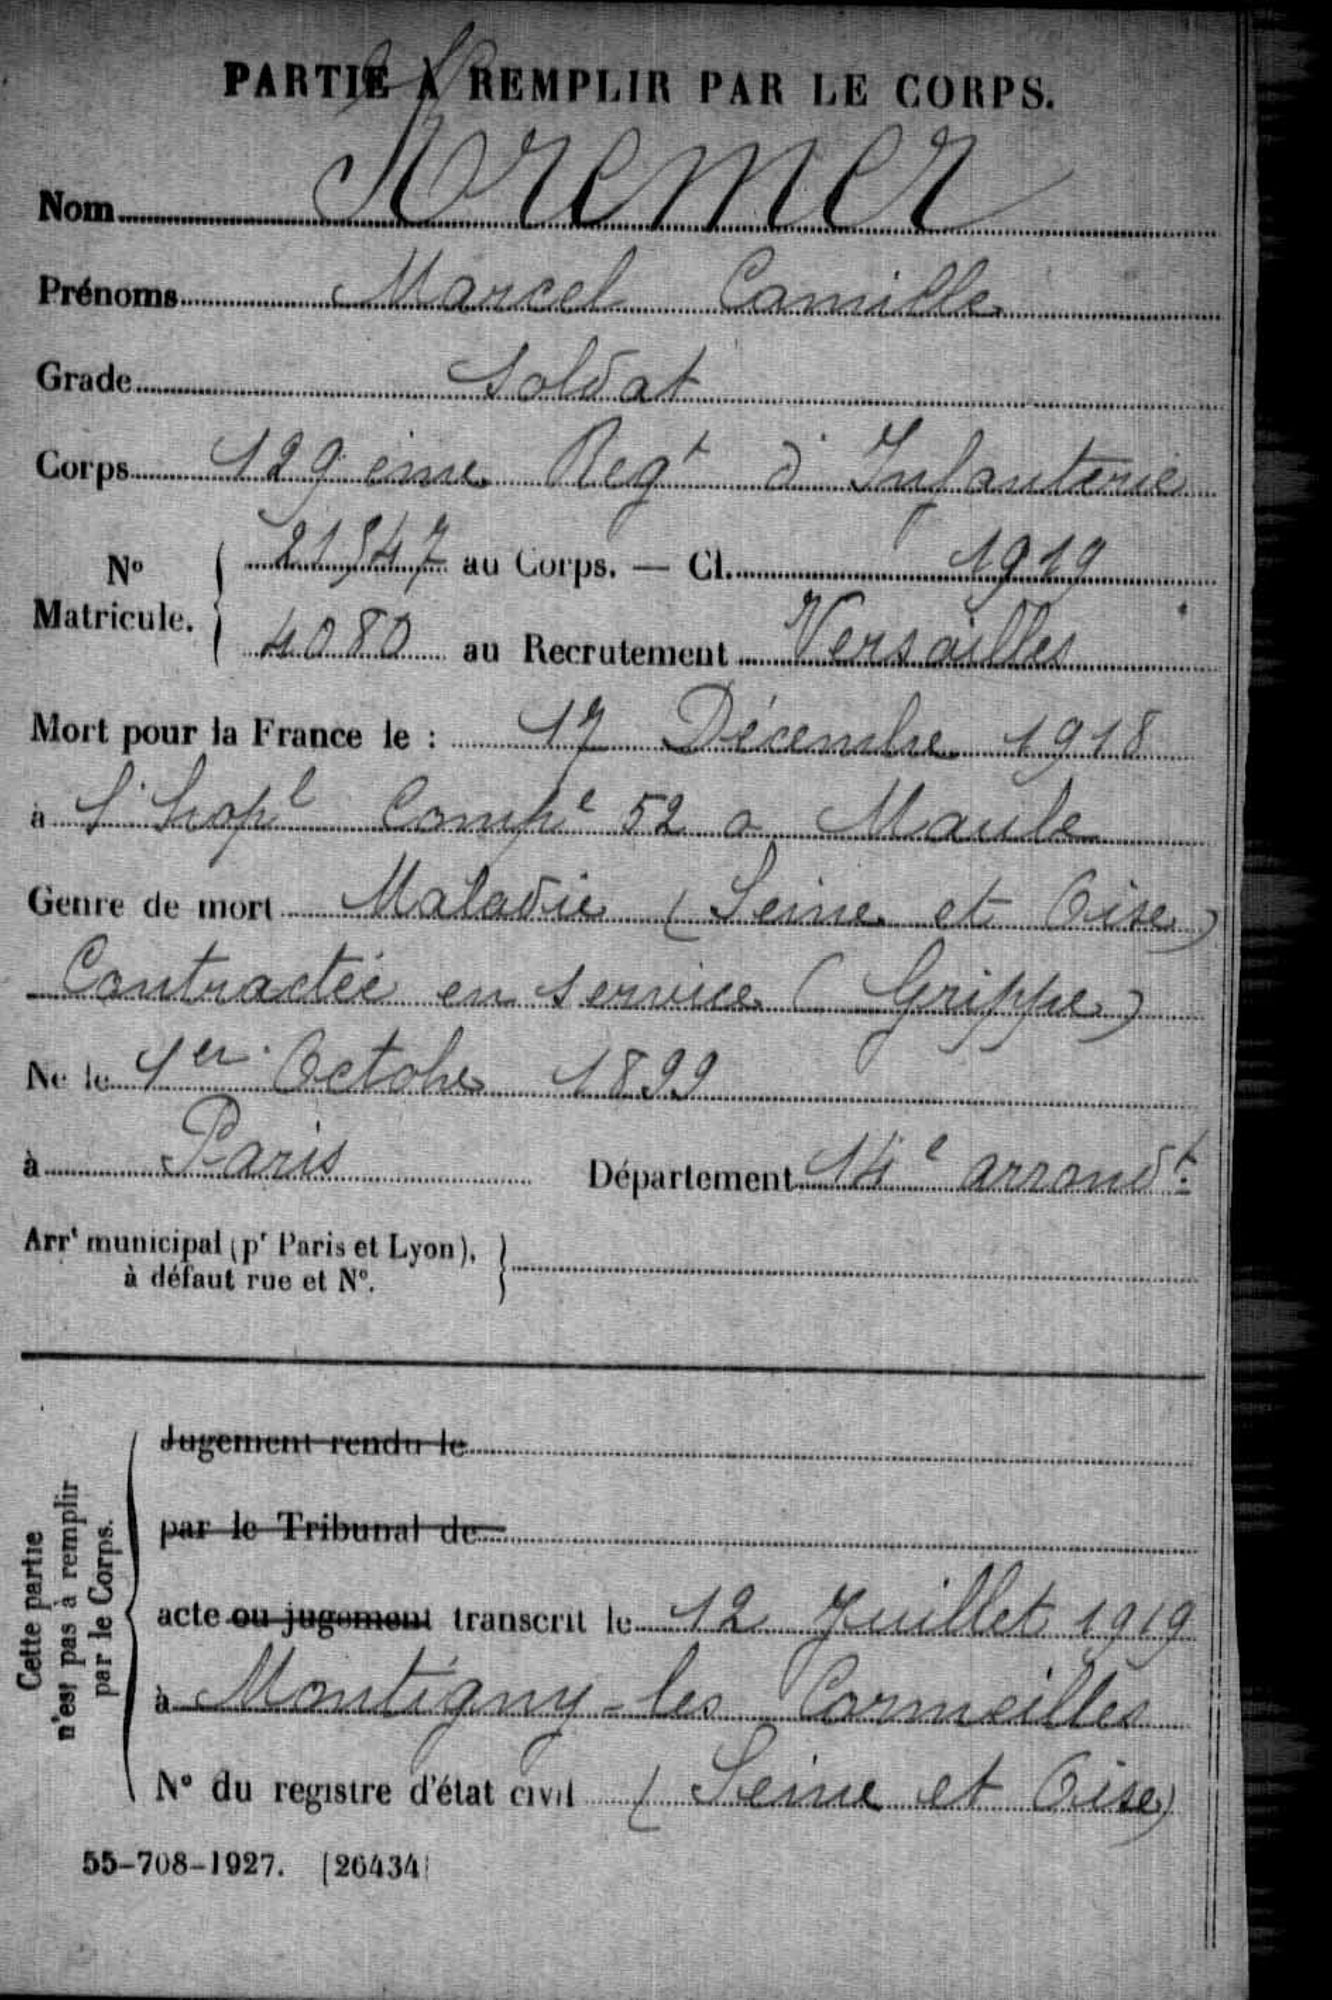 PARTIE A REMPLIR PAR LE CORPS.
Nom Kremer
Prénoms Marcel Camille
Grade Soldat
Corps 129 eme Regt d'Infanterie
No Matricule. { 21547 au Corps. — Cl. 1919
4080 au Recrutement Versailles
Mort pour la France le : 17 Décembre 1918
à l'hopl Compe 52 a Maule
Genre de mort Maladie (Seine et Oise)
Contractée en service (Grippe)
Né le 1er Octobre 1899
à Paris Département 14e arrondt.
Arrt municipal (pr Paris et Lyon), à défaut rue et No. }
Cette partie n'est pas à remplir par le Corps.
Jugement rendu le
par le Tribunal de
acte ou jugement transcrit le 12 Juillet 1919
à Montigny-les Cormeilles
No du registre d'état civil (Seine et Oise)
55-708-1927. [26434]